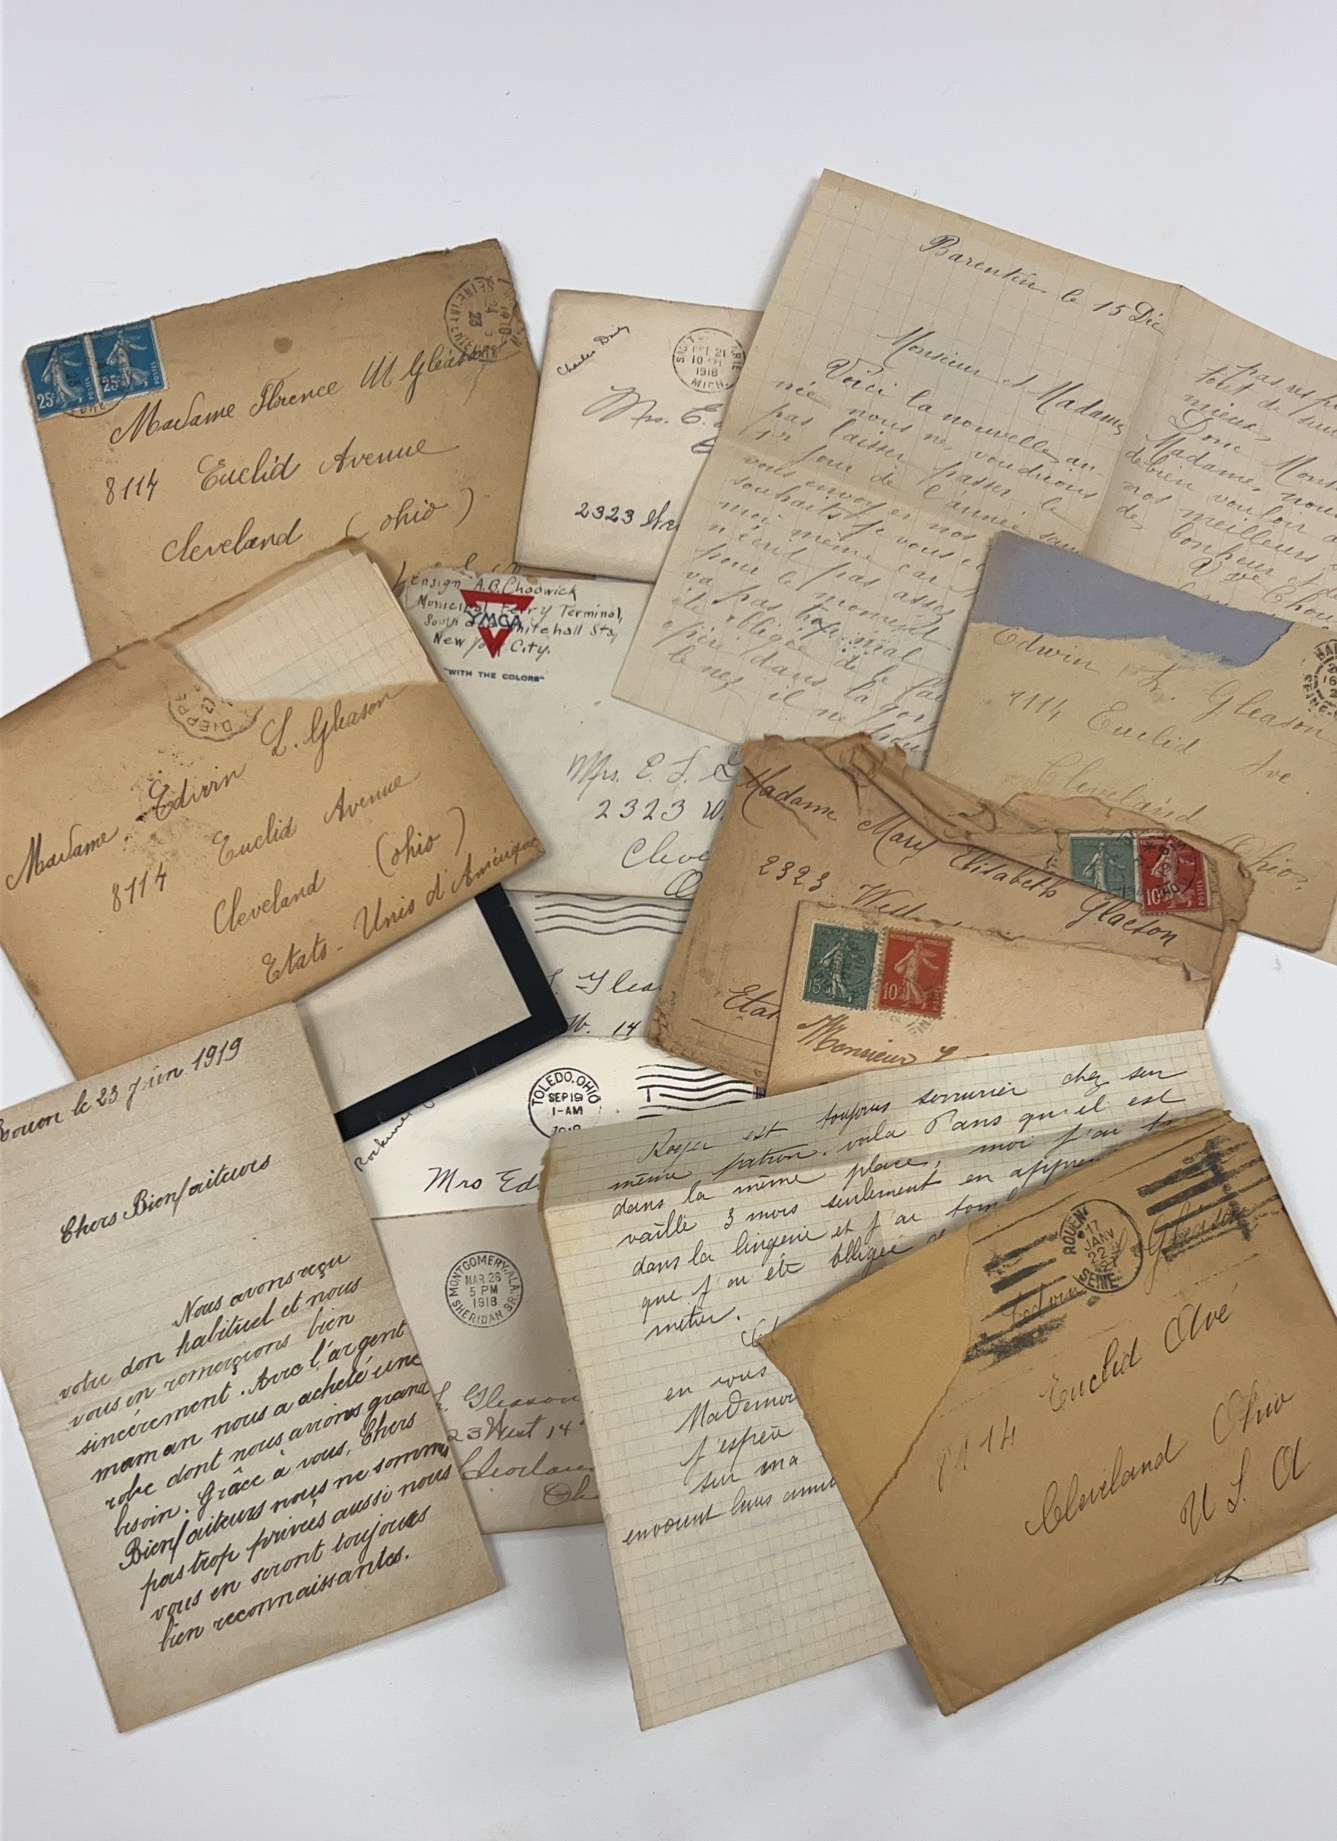 25c
25c
Madame Florence M Gleason
8114 Euclid Avenue
Cleveland (Ohio)
Charles
1918
MICH.
Mrs. E.
2323
Barentin le 15 Déc
Monsieur et Madame,
Voici la nouvelle an-
née nous ne voudrions
pas laisser passer le
1er jour de l'année sans
vous envoyer nos
souhaits je vous
moi même car
n'écrit pas assez
pour le moment
va pas trop mal
été obligée de le
opéré dans la gorge
le nez il ne
pas
tout de
mieux,
Donc
Madame, nous
de bien vouloir
nos meilleurs
de bonheur et
Ensign A.G. Chadwick
Municipal Ferry Terminal,
South and Whitehall Sts,
New York City.
YMCA
"WITH THE COLORS"
Mrs. E. L. G
2323 W.
Cleve
O
Edwin L. Gleason
8114 Euclid Ave.
Cleveland
Ohio
DIEPPE
Madame Edwin L. Gleason
8114 Euclid Avenue
Cleveland (Ohio)
Etats-Unis d'Amérique
Madame Mary Elisabeth Glaeson
2323 West
Etat
10c
15c
10c
Monsieur
L. Gleas
W. 14
TOLEDO, OHIO
SEP 19
1-AM
Mrs Ed
Rouen le 23 Juin 1919
Chers Bienfaiteurs
Nous avons reçu
votre don habituel et nous
vous en remerçions bien
sincèrement. Avec l'argent
maman nous a acheté une
robe dont nous avions grand
besoin. Grâce à vous, Chers
Bienfaiteurs nous ne sommes
pas trop privées aussi nous
vous en seront toujours
bien reconnaissantes.
MONTGOMERY, ALA.
MAR 26
5 PM
1918
SHERIDAN BR.
L. Gleason
23 West 14
Clevelan
Oh
Roger est toujours serrurier chez son
même patron. voila 5 ans qu'il est
dans la même place, moi j'ai tra
vaillé 3 mois seulement en appren
dans la lingerie et j'ai tom
que j'ai été obligée
métier.
en vous
Mademoi
j'espère
sur ma
envoient leurs ami
ROUEN
17
JANV
22
SEINE
Edwin Gleason
8114 Euclid Avé
Cleveland Ohio
U S A